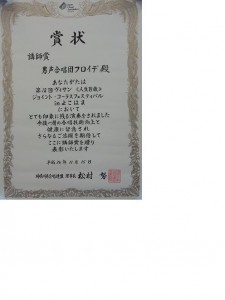 賞状
講師賞
男声合唱団フロイデ殿
あなたがたは
第12回ヴィサン《人生百歳》
ジョイント・コーラスフェスティバル
in よこはま
において
とても印象に残る演奏をされました
今後一層の合唱技術向上と
健康に留意され
さらなるご活躍を期待して
ここに講師賞を贈り
表彰いたします
平成
松村 努